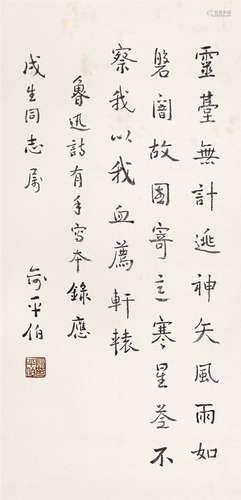 靈臺無計逃神矢風雨如
磐闇故園寄意寒星荃不
察我以我血薦軒轅
魯迅詩有手寫本錄應
成生同志屬
俞平伯